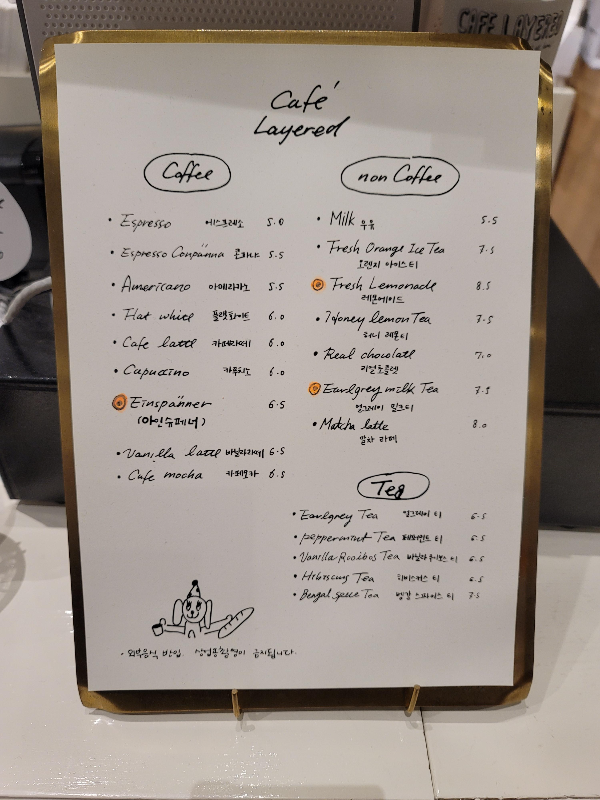 CAFE LAYERED
Café
Layered
Coffee
• Espresso 에스프레소 5.0
• Espresso Conpanna 콘파냐 5.5
• Americano 아메리카노 5.5
• Flat white 플랫화이트 6.0
• Cafe latte 카페라떼 6.0
• Capuccino 카푸치노 6.0
Einspänner 6.5
(아인슈페너)
• Vanilla latte 바닐라라떼 6.5
• Cafe mocha 카페모카 6.5
non Coffee
• Milk 우유 5.5
• Fresh Orange Ice Tea 7.5
오렌지 아이스티
Fresh Lemonade 8.5
레몬에이드
• Honey lemon Tea 7.5
허니 레몬티
• Real chocolate 7.0
리얼초콜렛
Earlgrey milk Tea 7.5
얼그레이 밀크티
• Matcha latte 8.0
말차 라떼
Tea
• Earlgrey Tea 얼그레이 티 6.5
• peppermint Tea 페퍼민트 티 6.5
• Vanilla Rooibos Tea 바닐라루이보스 티 6.5
• Hibiscus Tea 히비스커스 티 6.5
• Bengal spice Tea 벵갈 스파이스 티 7.5
• 외부음식 반입, 상업용촬영이 금지됩니다.